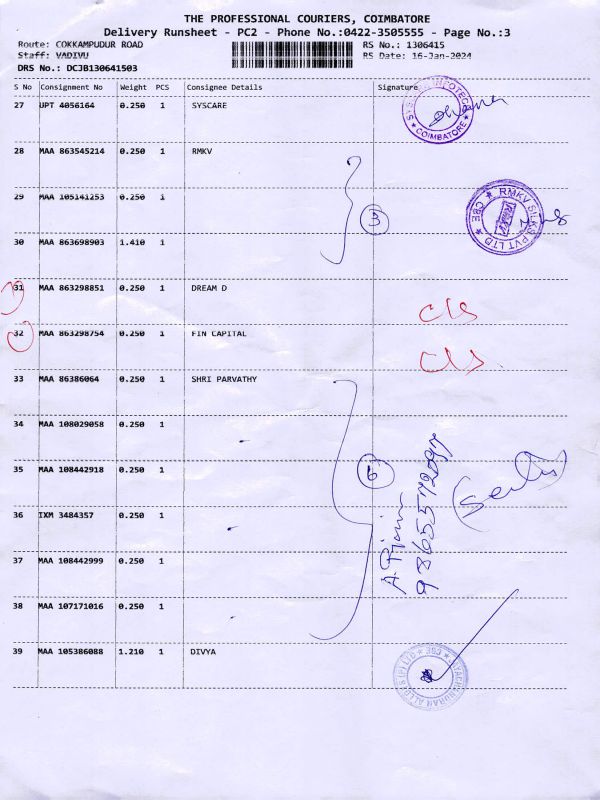 THE PROFESSIONAL COURIERS, COIMBATORE
Delivery Runsheet - PC2 - Phone No.:0422-3505555 - Page No.:3
Route: COKKAMPUDUR ROAD RS No.: 1306415
Staff: VADIVU RS Date: 16-Jan-2024
DRS No.: DCJB130641503
S No Consignment No Weight PCS Consignee Details Signature
27 UPT 4056164 0.250 1 SYSCARE
COIMBATORE
28 MAA 863545214 0.250 1 RMKV
29 MAA 105141253 0.250 1
3
RMKV SILKS PVT LTD
CBE
30 MAA 863698903 1.410 1
31 MAA 863298851 0.250 1 DREAM D
cls
32 MAA 863298754 0.250 1 FIN CAPITAL
cls
33 MAA 86386064 0.250 1 SHRI PARVATHY
34 MAA 108029058 0.250 1
35 MAA 108442918 0.250 1
6
36 IXM 3484357 0.250 1
37 MAA 108442999 0.250 1
38 MAA 107171016 0.250 1
39 MAA 105386088 1.210 1 DIVYA